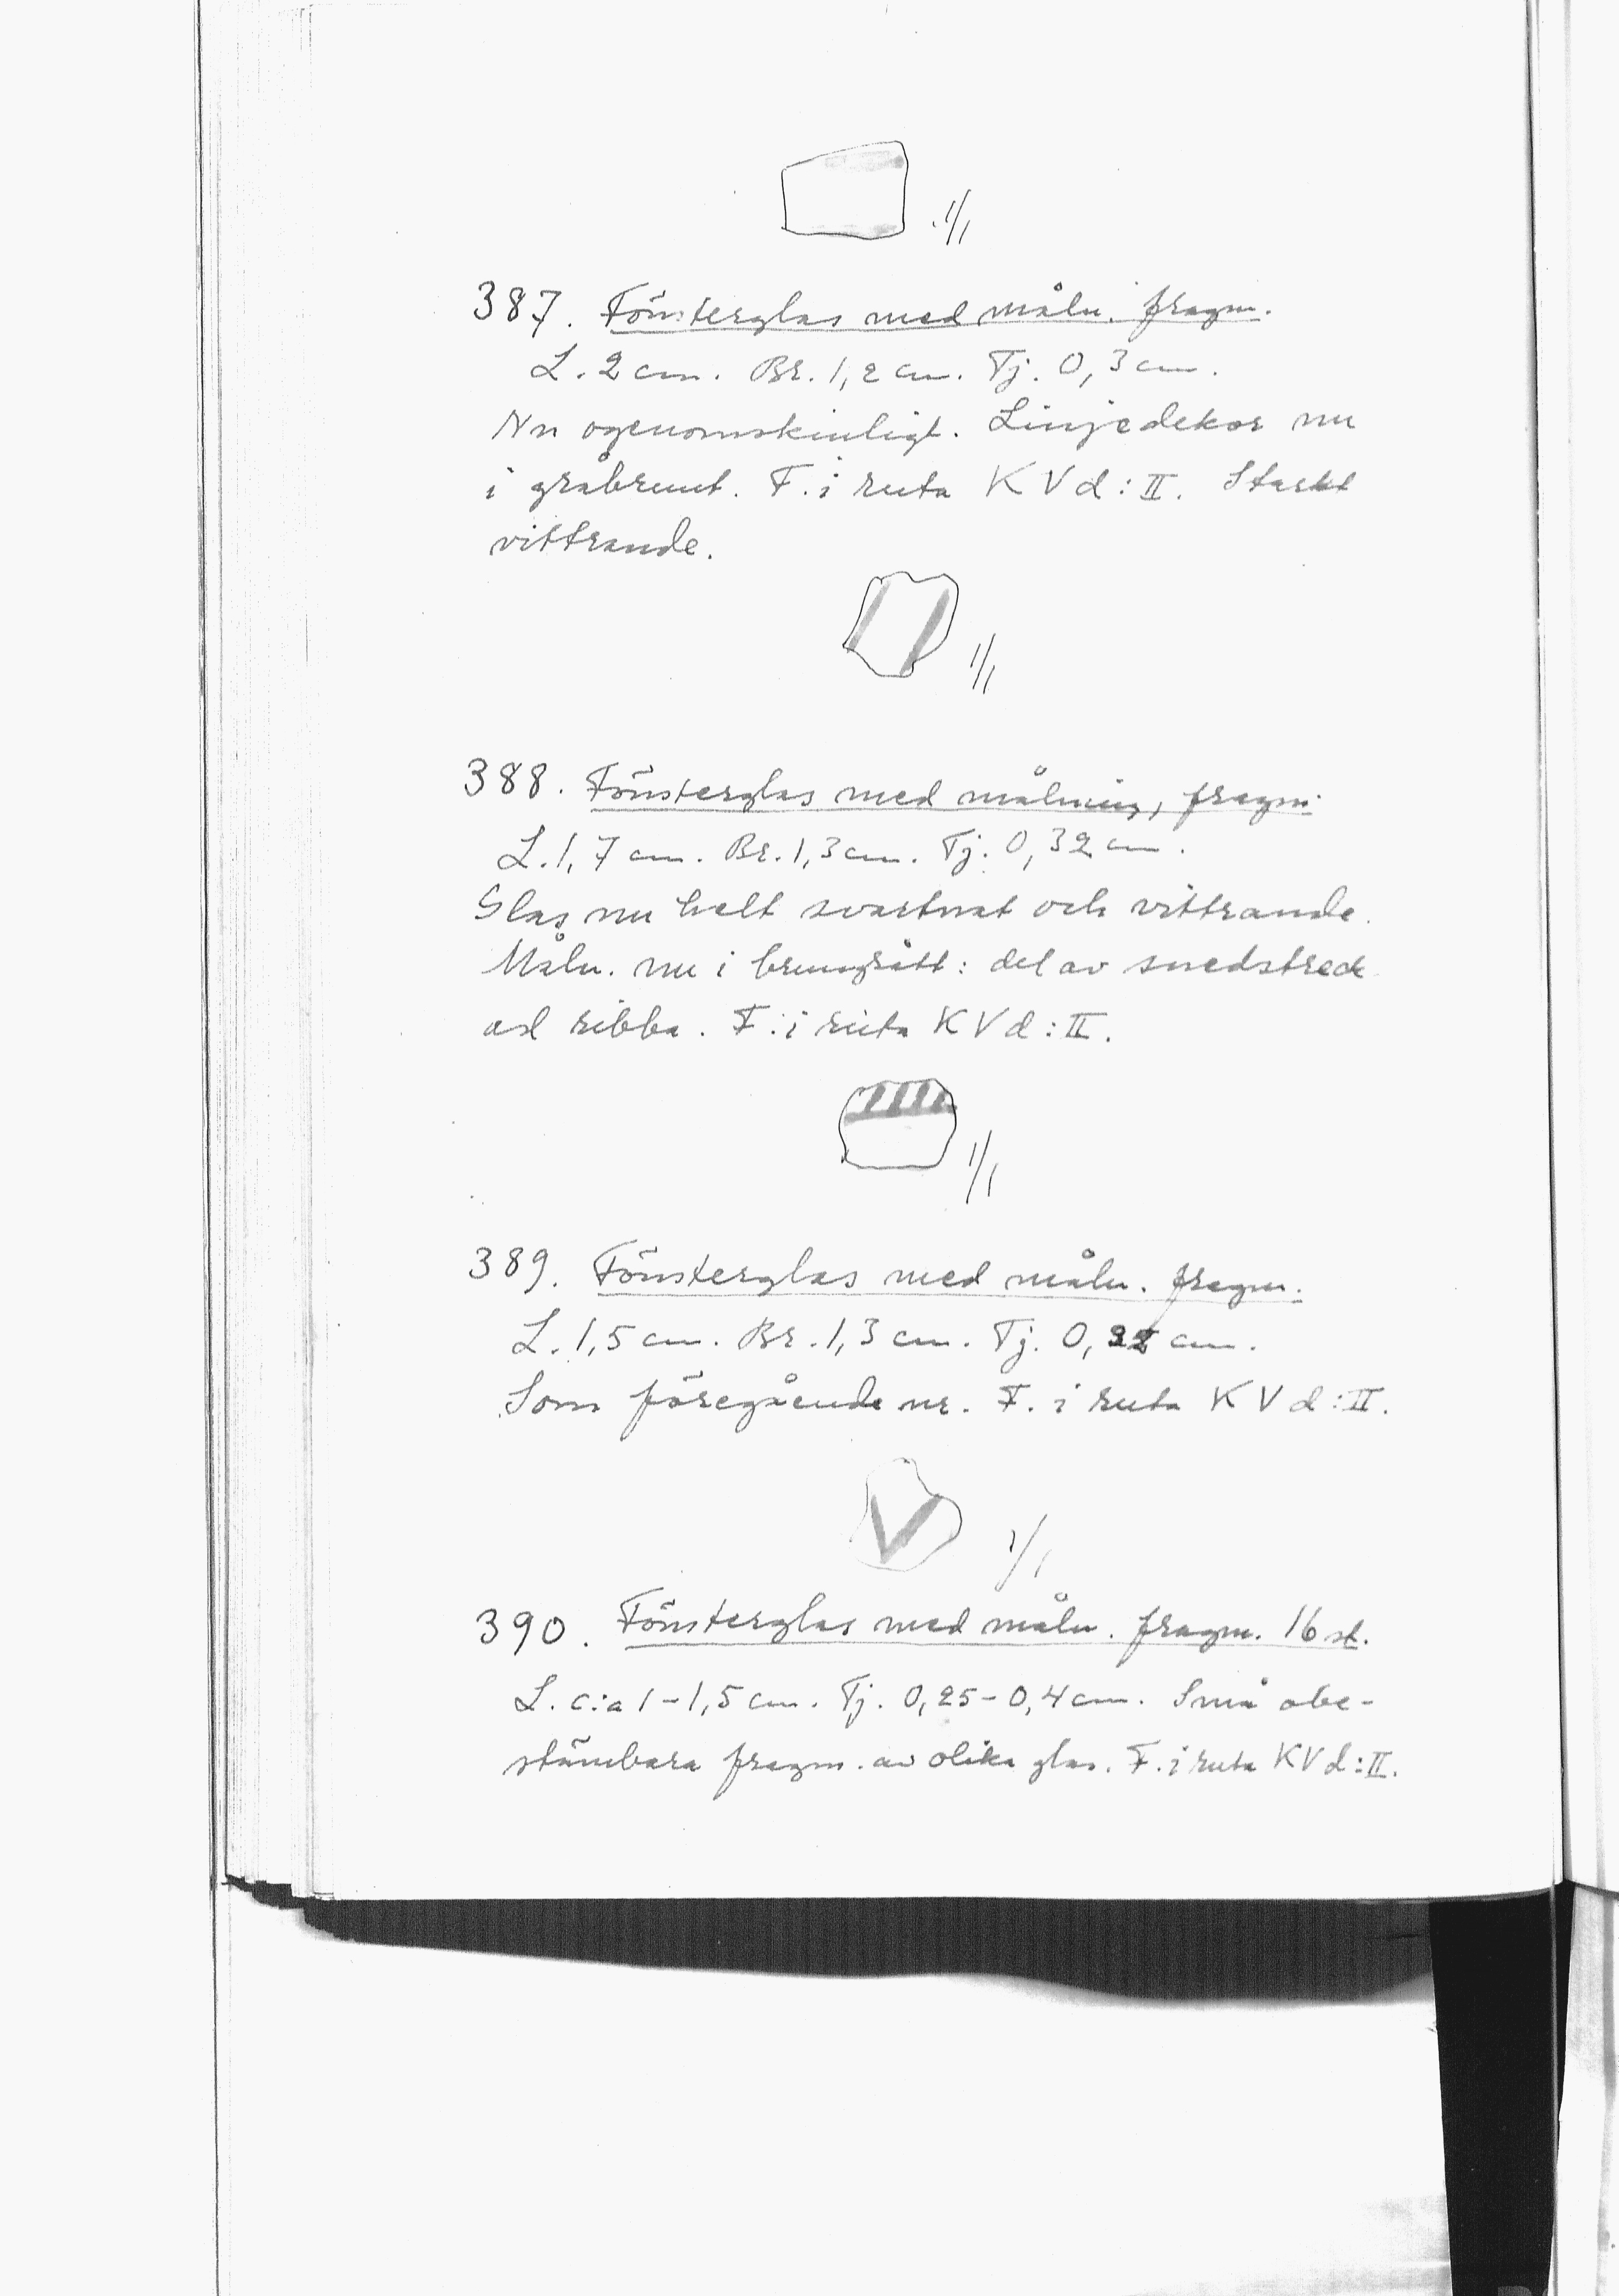 1/1
387. Fönsterglas med måln. fragm.
L. 2 cm. Br. 1,2 cm. Tj. 0,3 cm.
Nu ogenomskinligt. Linjedekor nu
i gråbrunt. F. i ruta K V d : II. Starkt
vittrande.
1/1
388. Fönsterglas med målning, fragm.
L. 1,7 cm. Br. 1,3 cm. Tj. 0,32 cm.
Glas nu helt svartnat och vittrande.
Måln. nu i brungrått: del av snedstreck
ad ribba. F. i ruta K V d : II.
1/1
389. Fönsterglas med måln. fragm.
L. 1,5 cm. Br. 1,3 cm. Tj. cm.
Som föregående nr. F. i ruta K V d : II.
1/1
390. Fönsterglas med måln. fragm. 16 st.
L. c:a 1-1,5 cm. Tj. 0,25-0,4 cm. Små obe-
stämbara fragm. av olika glas. F. i ruta KV d : II.